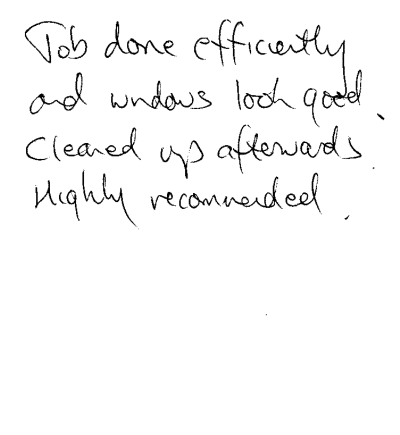 Job done efficiently
and windows look good.
Cleared up afterwards.
Highly recommended.